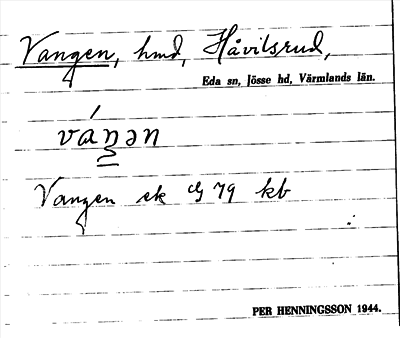 Vangen, hmd, Håvilsrud,
Eda sn, Jösse hd, Värmlands län.
váŋən
Vangen ek 79 kb
PER HENNINGSSON 1944.